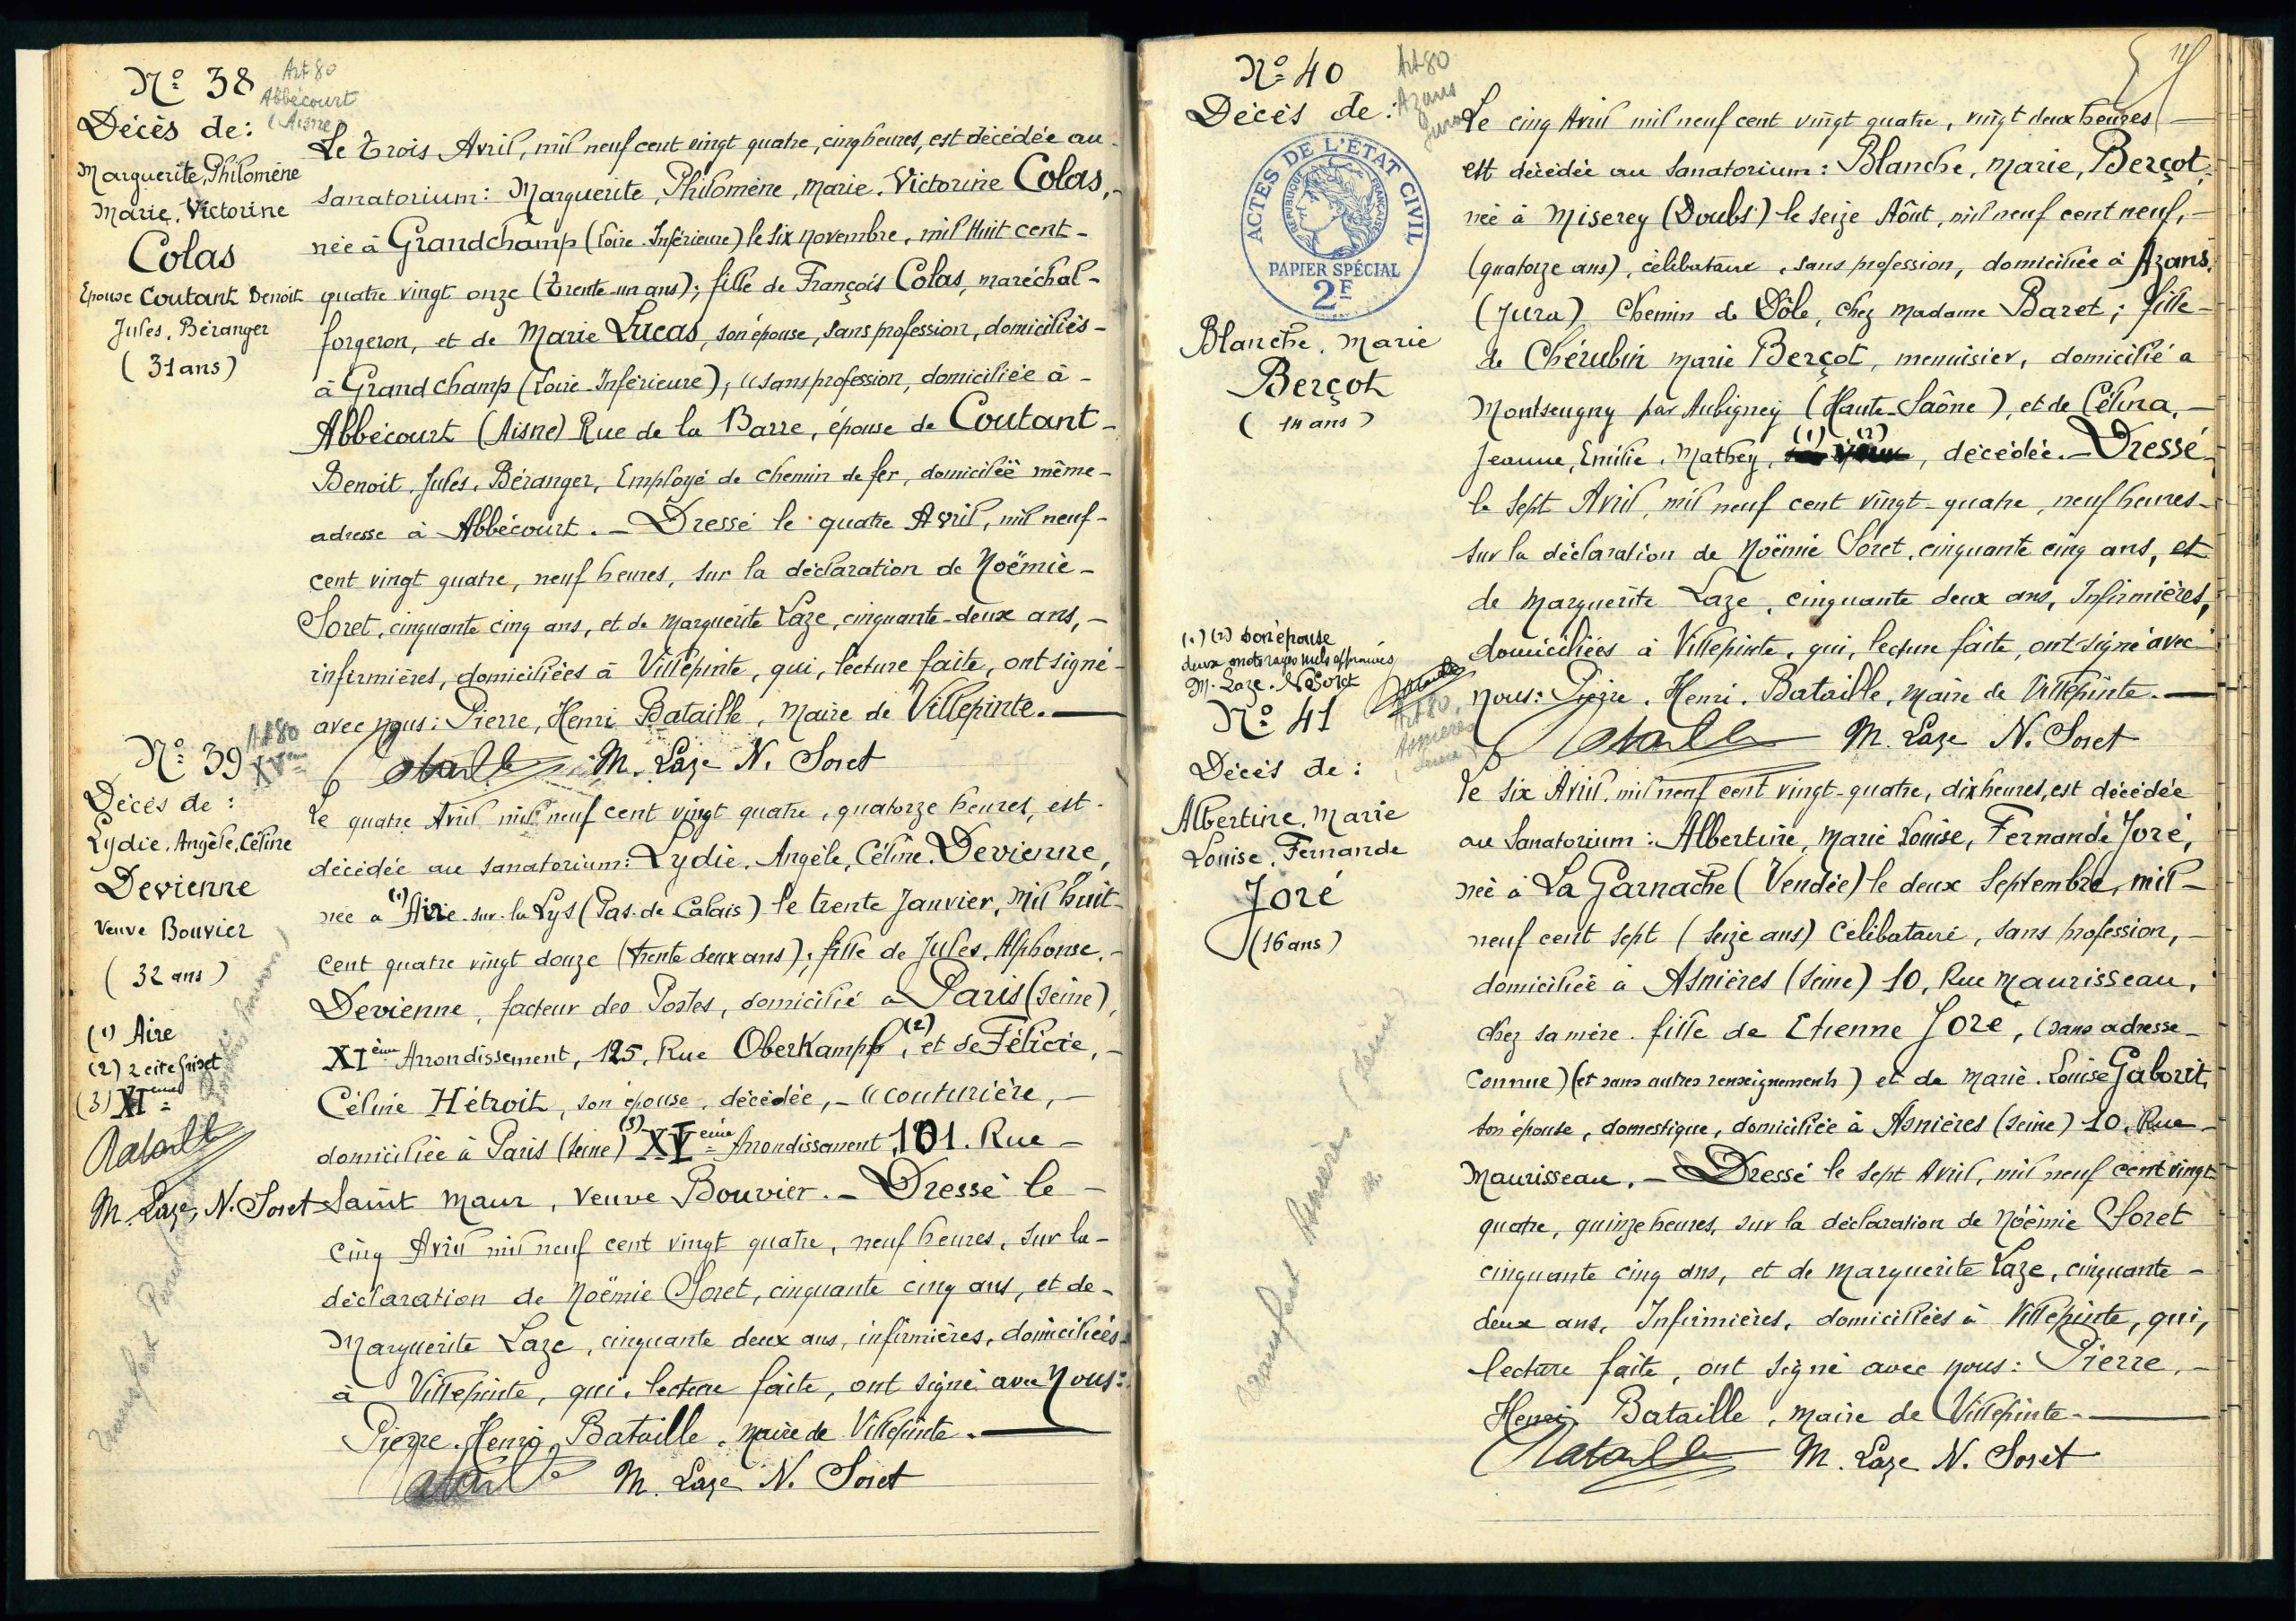 N° 38
Art 80
Abbécourt
(Aisne)
Décès de :
Marguerite, Philomène
Marie, Victorine
Colas
Epouse Coutant Benoit
Jules, Béranger
(31 ans)
Le Trois Avril, mil neuf cent vingt quatre, cinq heures, est décédée au
sanatorium : Marguerite, Philomène, Marie, Victorine Colas, -
née à Grandchamp (Loire-Inférieure) le six novembre, mil huit cent -
quatre vingt onze (trente-un ans) ; fille de François Colas, maréchal -
forgeron, et de Marie Lucas, son épouse, sans profession, domiciliés -
à Grandchamp (Loire Inférieure), "sans profession, domiciliée à -
Abbécourt (Aisne) Rue de la Barre, épouse de Coutant -
Benoit, Jules, Béranger, Employé de chemin de fer, domicilié même -
adresse à Abbécourt. - Dressé le quatre Avril, mil neuf -
cent vingt quatre, neuf heures, sur la déclaration de Noëmie -
Soret, cinquante cinq ans, et de Marguerite Laze, cinquante-deux ans, -
infirmières, domiciliées à Villepinte, qui, lecture faite, ont signé -
avec nous : Pierre, Henri Bataille, Maire de Villepinte. -
Bataille M. Laze N. Soret
N° 39
Art 80
XVème
Décès de :
Lydie, Angèle, Céline
Devienne
Veuve Bouvier
(32 ans)
(1) Aire
(2) 2 cité Griset
(3) XIème
Bataille
M. Laze, N. Soret
Le quatre Avril mil neuf cent vingt quatre, quatorze heures, est -
décédée au sanatorium : Lydie, Angèle, Céline, Devienne,
née à (1) Aire-sur-la Lys (Pas-de-Calais) le trente Janvier, mil huit -
cent quatre vingt douze (trente deux ans) ; fille de Jules, Alphonse, -
Devienne, facteur des Postes, domicilié à Paris (Seine),
XIème Arrondissement, 125, Rue Oberkampf, (2) et de Félicie, -
Céline Hétroit, son épouse, décédée, - "couturière, -
domiciliée à Paris (Seine) (3) XVeme Arrondissement, 101. Rue -
Saint Maur, veuve Bouvier. - Dressé le -
cinq Avril mil neuf cent vingt quatre, neuf heures, sur la -
déclaration de Noëmie Soret, cinquante cinq ans, et de -
Marguerite Laze, cinquante deux ans, infirmières, domiciliées
à Villepinte, qui, lecture faite, ont signé avec Nous :
Pierre, Henri, Bataille, Maire de Villepinte. -
Bataille M. Laze N. Soret
N° 40
Art 80
Azans
Jura
Décès de :
ACTES DE L'ÉTAT CIVIL
RÉPUBLIQUE FRANÇAISE
PAPIER SPÉCIAL
2F
Blanche, Marie
Berçot
(14 ans)
(1) (2) son épouse
deux mots rayés nuls approuvés
M. Laze. N. Soret
Bataille
Le cinq Avril mil neuf cent vingt quatre, vingt deux heures -
est décédée au sanatorium : Blanche, Marie, Berçot,
née à Miserey (Doubs) le seize Août, mil neuf cent neuf, -
(quatorze ans), célibataire, sans profession, domiciliée à Azans,
(Jura) Chemin de Dôle, chez Madame Baret ; fille -
de Chérubin Marie Berçot, menuisier, domicilié à
Montseugny par Aubigney (Haute-Saône), et de Célina, -
Jeanne, Emilie, Mathey, (1) (2), décédée. - Dressé
le sept Avril, mil neuf cent vingt-quatre, neuf heures -
sur la déclaration de Noëmie Soret, cinquante cinq ans, et
de Marguerite Laze, cinquante deux ans, Infirmières,
domiciliées à Villepinte, qui, lecture faite, ont signé avec
nous : Pierre, Henri, Bataille, Maire de Villepinte. -
Bataille M. Laze N. Soret
N° 41
Art 80,
Asnières
(Seine)
Décès de :
Albertine, Marie
Louise, Fernande
Joré
(16 ans)
Le six Avril, mil neuf cent vingt-quatre, dix heures, est décédée
au Sanatorium : Albertine, Marie Louise, Fernande Joré,
née à La Garnache (Vendée) le deux Septembre, mil -
neuf cent sept (seize ans) Célibataire, sans profession, -
domiciliée à Asnières (Seine) 10, Rue Maurisseau,
chez sa mère. fille de Etienne Joré, (sans adresse -
connue) (et sans autres renseignements) et de Marie-Louise Gaborit,
son épouse, domestique, domiciliée à Asnières (Seine) 10, Rue -
Maurisseau. - Dressé le sept Avril, mil neuf cent vingt
quatre, quinze heures, sur la déclaration de Noëmie Soret
cinquante cinq ans, et de Marguerite Laze, cinquante -
deux ans, Infirmières, domiciliées à Villepinte, qui,
lecture faite, ont signé avec nous : Pierre, -
Henri, Bataille, Maire de Villepinte. -
Bataille M. Laze N. Soret